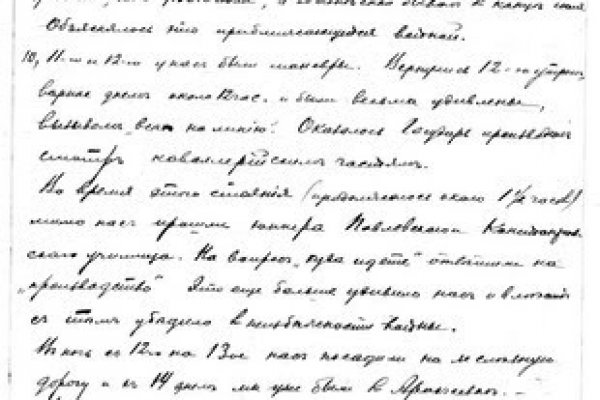 Объяснялось это приближающейся войной.
10, 11-го и 12-го у нас были маневры. Вернулись 12-го утром,
днем около 12 час. и были весьма удивлены,
вызовом „всех на линию". Оказалось Государь производил
смотр кавалерийским частям.
Во время этого стояния (продолжалось около 1½ часов)
мимо нас прошли юнкера Павловского
ского училища. На вопрос „куда идете" ответили на
„производство" Это еще больше удивило нас и
с тем убедило в неизбежности войны.
В ночь с 12-го на 13-ое нас посадили на железную
дорогу и 14 днем мы уже были в